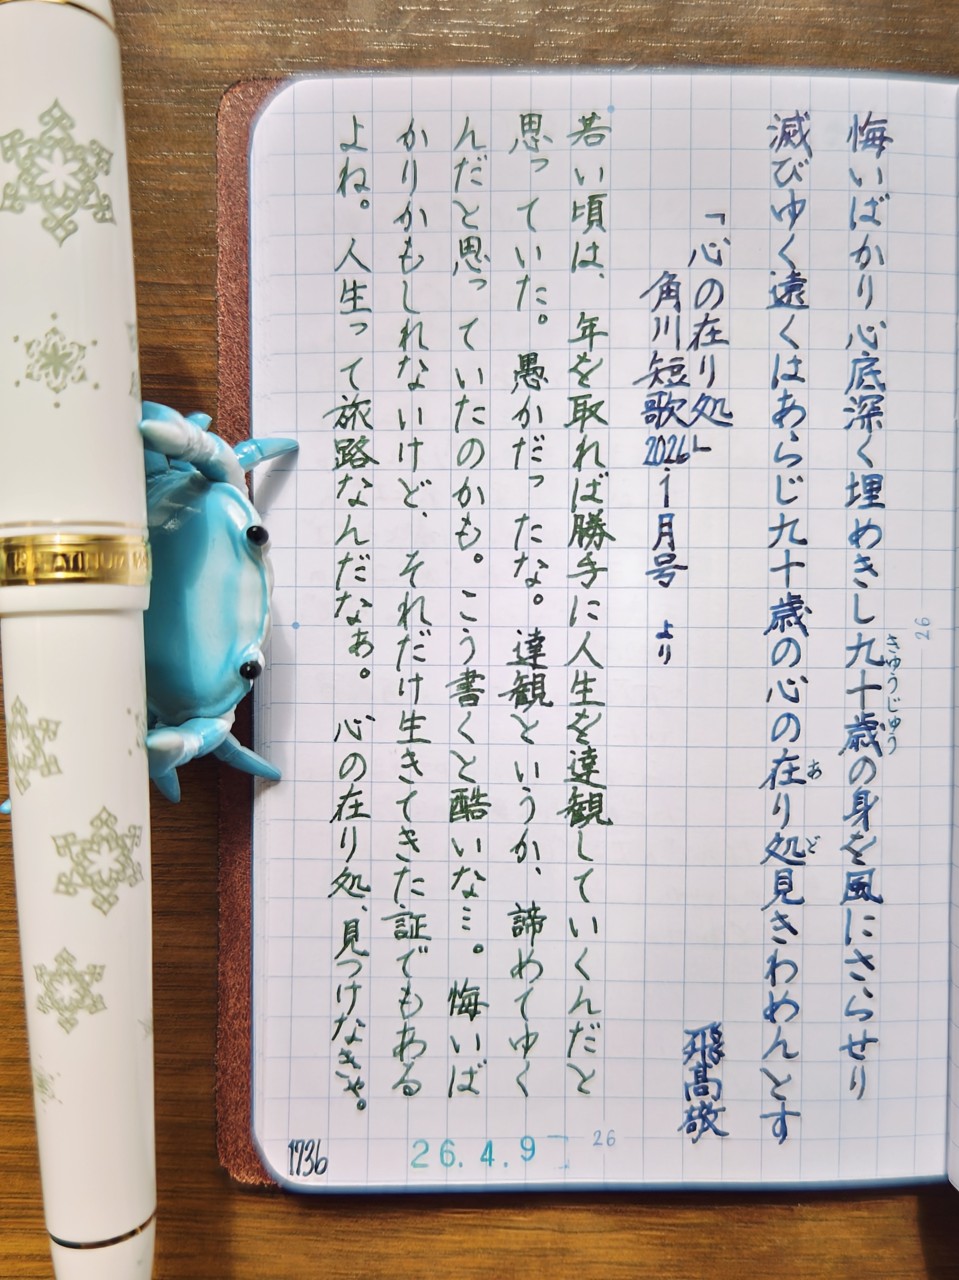 悔いばかり心底深く埋めきし九十歳の身を風にさらせり
きゅうじゅう
滅びゆく遠くはあらじ九十歳の心の在り処見きわめんとす
あ
ど
「心の在り処」
飛高敬
角川短歌2026・1月号 より
若い頃は、年を取れば勝手に人生を達観していくんだと
思っていた。愚かだったな。達観というか、諦めてゆく
んだと思っていたのかも。こう書くと酷いな…。悔いば
かりかもしれないけど、それだけ生きてきた証でもある
よね。人生って旅路なんだなぁ。心の在り処、見つけなきゃ。
26
26
26.4.9
1736
PLATINUM